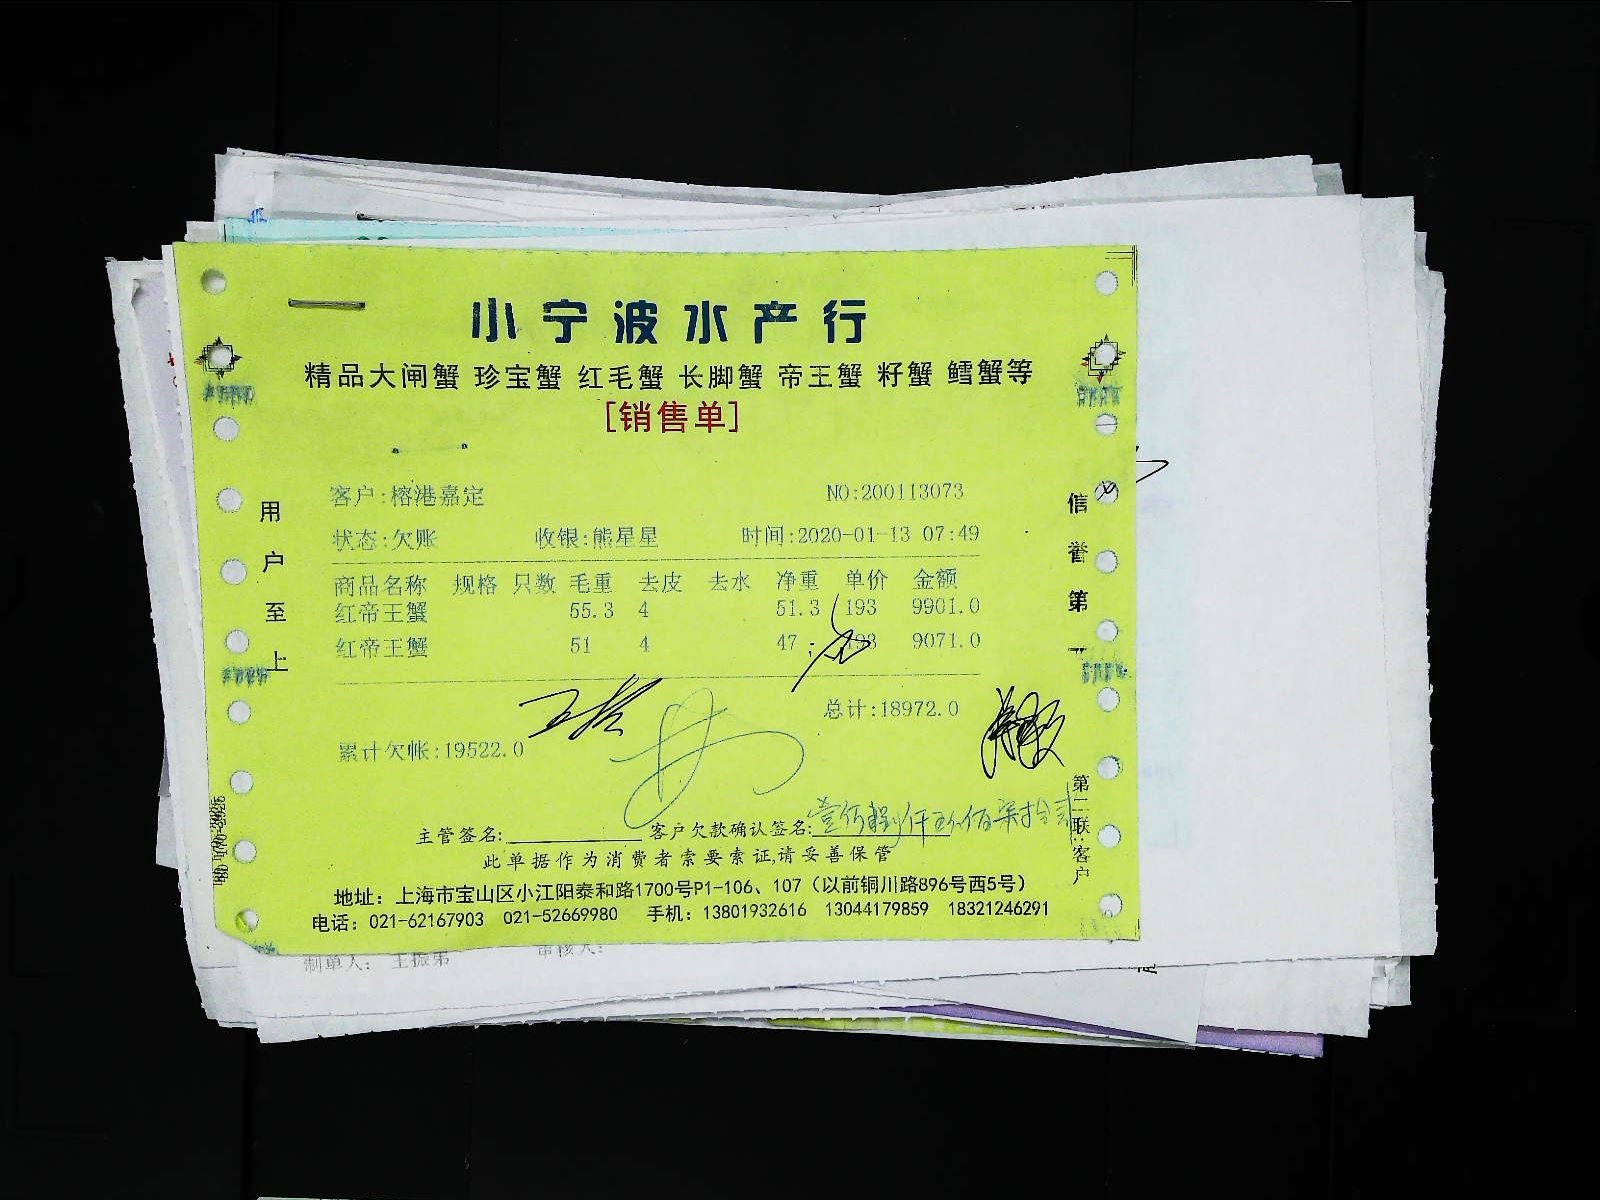 小宁波水产行
精品大闸蟹 珍宝蟹 红毛蟹 长脚蟹 帝王蟹 籽蟹 鳕蟹等
[销售单]
客户:榕港嘉定 NO:200113073
状态:欠账 收银:熊星星 时间:2020-01-13 07:49
商品名称 规格 只数 毛重 去皮 去水 净重 单价 金额
红帝王蟹 55.3 4 51.3 193 9901.0
红帝王蟹 51 4 47 193 9071.0
总计:18972.0
累计欠帐:19522.0
主管签名: 客户欠款确认签名:
此单据作为消费者索要索证,请妥善保管
地址：上海市宝山区小江阳泰和路1700号P1-106、107（以前铜川路896号西5号）
电话：021-62167903 021-52669980 手机：13801932616 13044179859 18321246291
用户至上
信誉第一
第二联:客户
制单人： 王振弟 审核人：